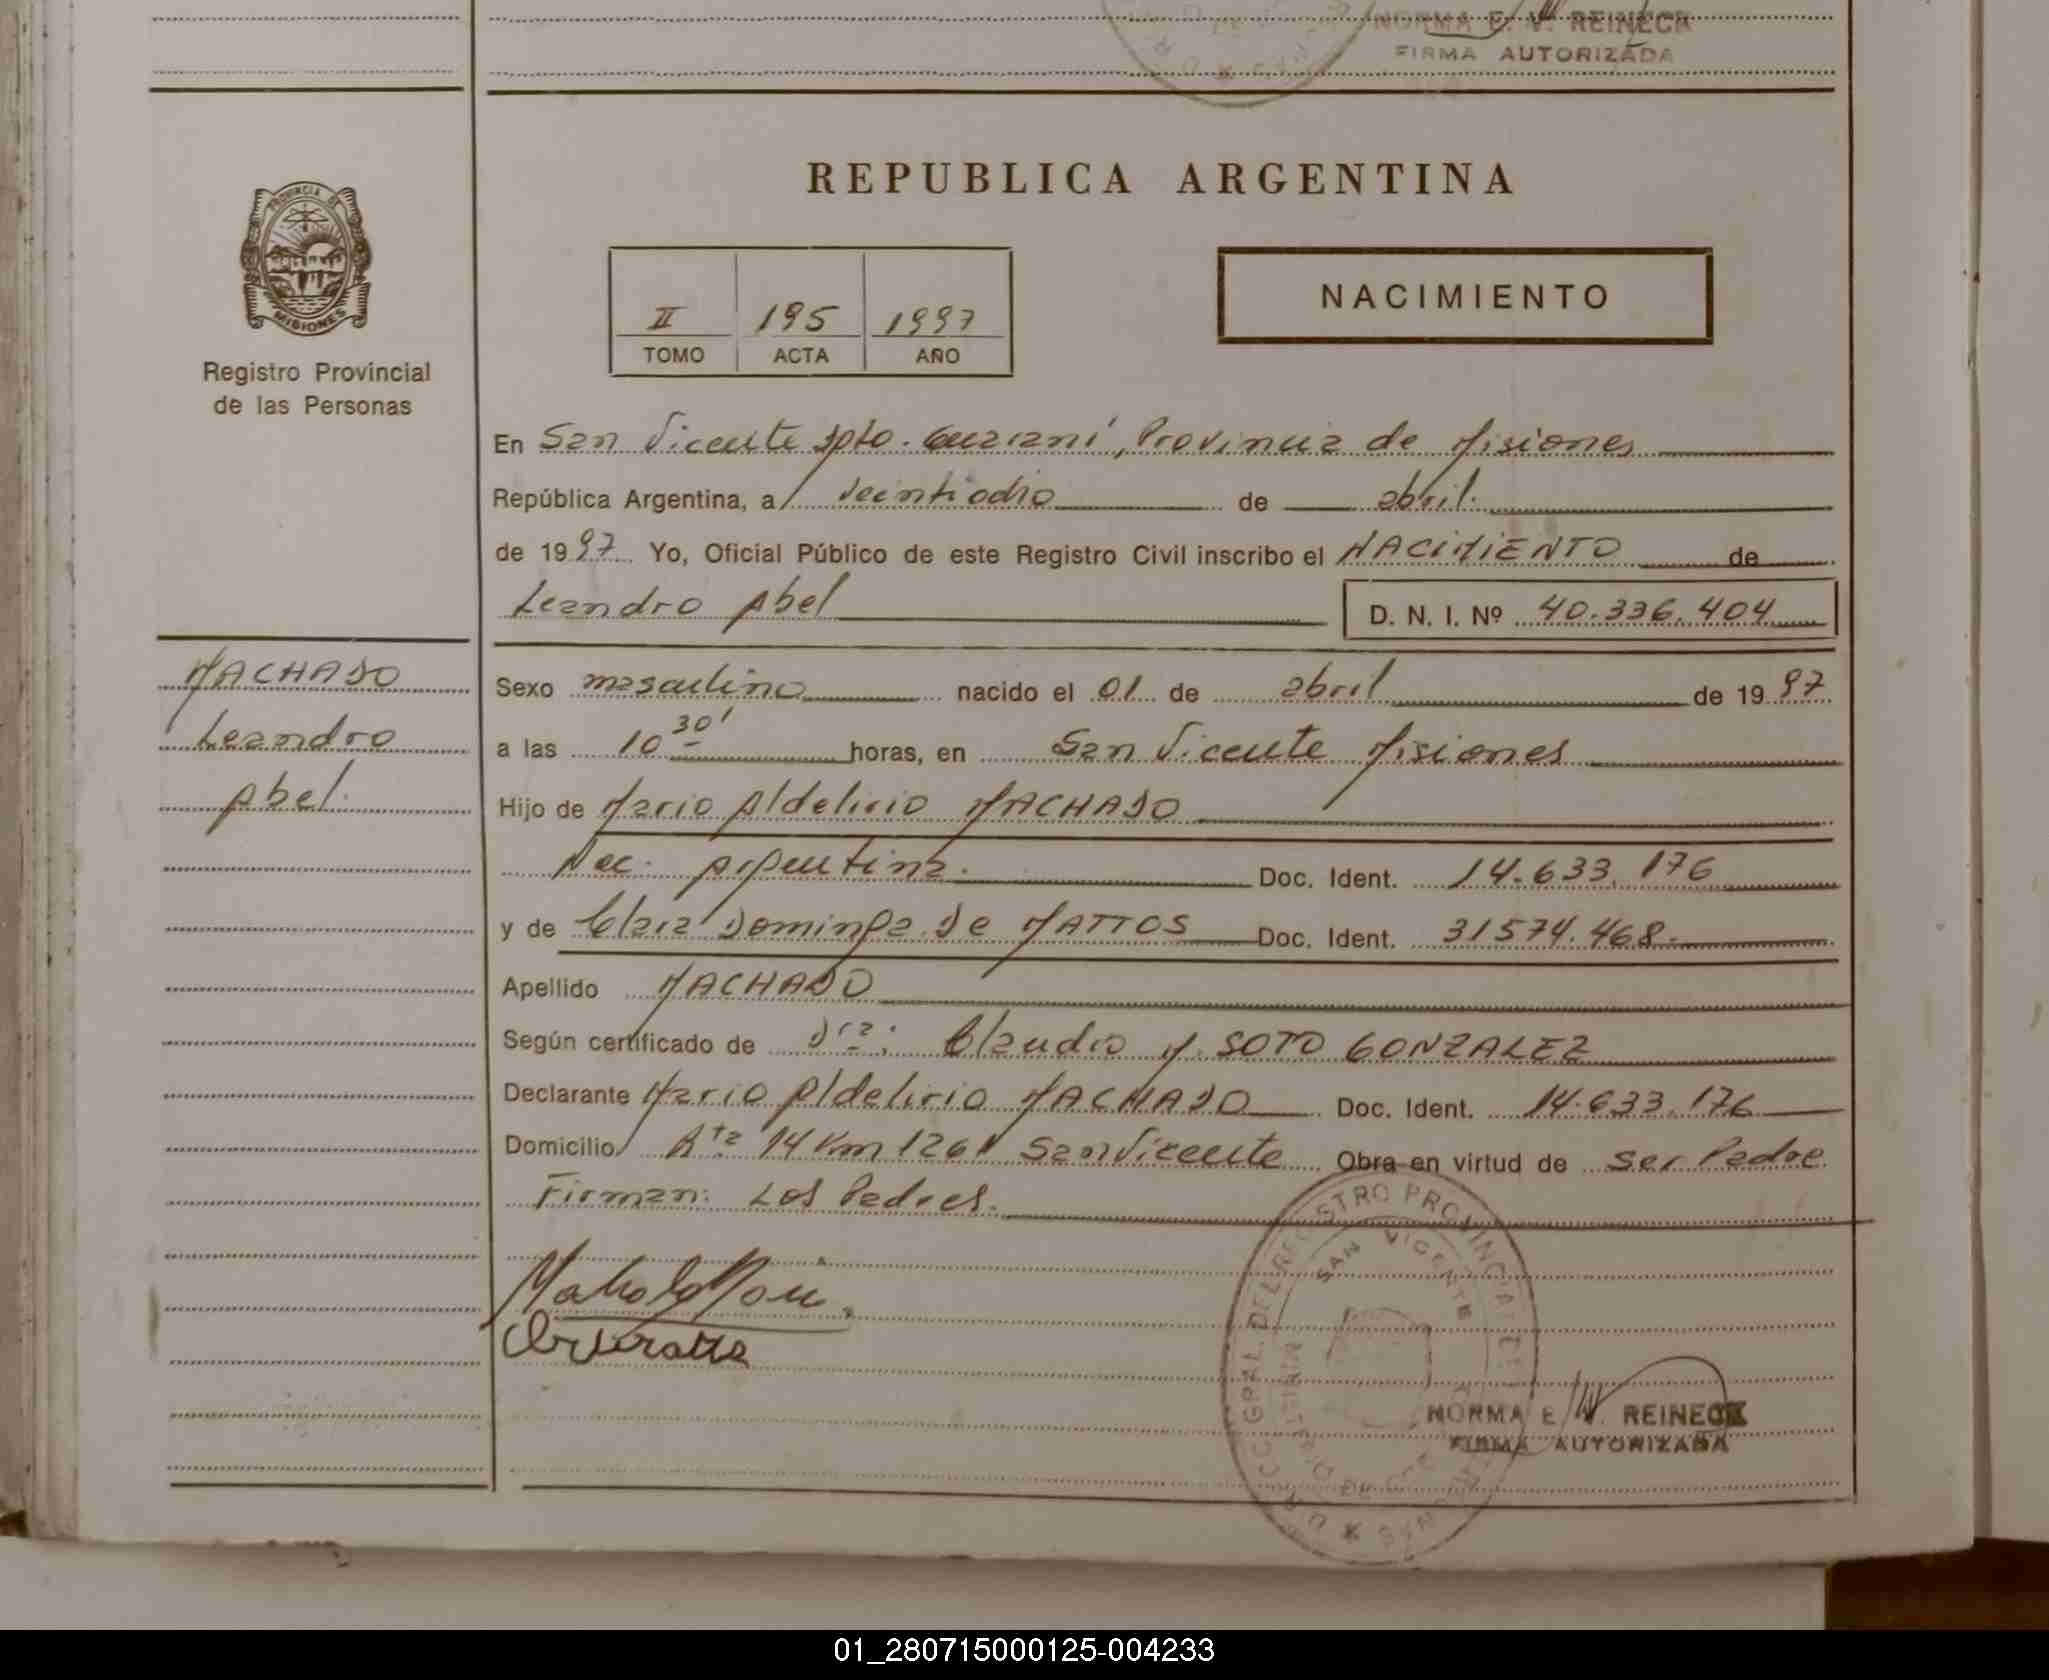 NORMA E. V. REINECK
FIRMA AUTORIZADA
PROVINCIA DE
MISIONES
Registro Provincial
de las Personas
REPUBLICA ARGENTINA
II 195 1997
TOMO ACTA AÑO
NACIMIENTO
En San Vicente Dpto. Guaraní, Provincia de Misiones
República Argentina, a veintiocho de abril.
de 1997 Yo, Oficial Público de este Registro Civil inscribo el NACIMIENTO de
Leandro Abel
D. N. I. Nº 40.336.404
MACHADO
Leandro
Abel.
Sexo masculino nacido el 01 de abril de 1997
a las 10 30' horas, en San Vicente Misiones
Hijo de Mario Aldelirio MACHADO
Nac. Argentina. Doc. Ident. 14.633.176
y de Clara Dominga De MATTOS Doc. Ident. 31574.468.
Apellido MACHADO
Según certificado de Dra: Claudia M. SOTO GONZALEZ
Declarante Mario Aldelirio MACHADO Doc. Ident. 14.633.176
Domicilio Rta 14 Km 1261 San Vicente Obra en virtud de ser Padre
Firman: Los Padres.
SAN VICENTE
NORMA E. V. REINECK
FIRMA AUTORIZADA
01_280715000125-004233